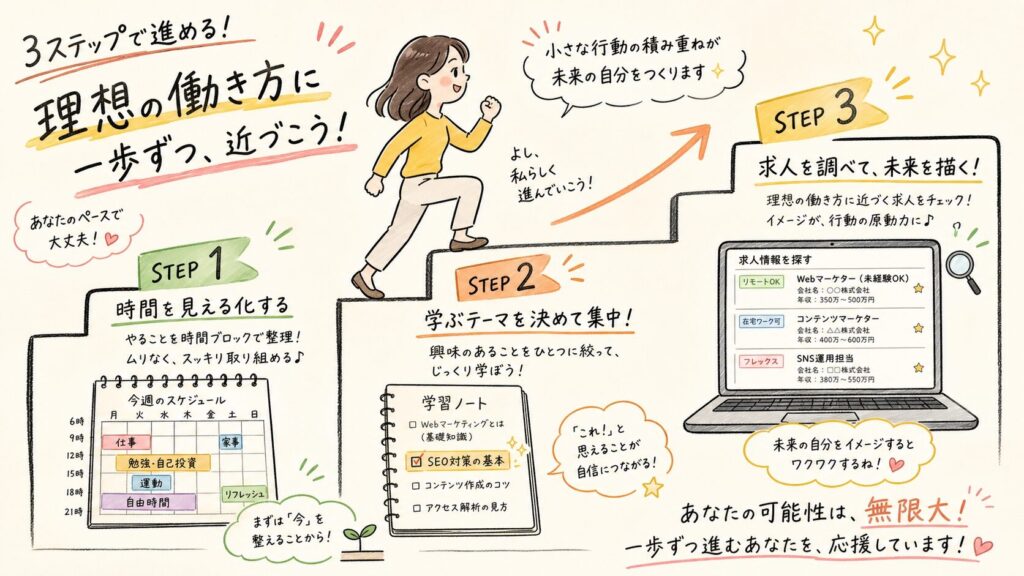 3ステップで進める!
理想の働き方に
一歩ずつ、近づこう!
小さな行動の積み重ねが
未来の自分をつくります
よし、
私らしく
進んでいこう!
あなたのペースで
大丈夫!
STEP 1
時間を見える化する
やることを時間ブロックで整理!
ムリなく、スッキリ取り組める♪
今週のスケジュール
月 火 水 木 金 土 日
6時
9時
12時
15時
18時
21時
仕事
家事
勉強・自己投資
運動
自由時間
リフレッシュ
まずは「今」を
整えることから!
STEP 2
学ぶテーマを決めて集中!
興味のあることをひとつに絞って、
じっくり学ぼう!
学習ノート
Webマーケティングとは
(基礎知識)
SEO対策の基本
コンテンツ作成のコツ
アクセス解析の見方
「これ!」と
思えることが
自信につながる!
STEP 3
求人を調べて、未来を描く!
理想の働き方に近づく求人をチェック!
イメージが、行動の原動力に♪
求人情報を探す
リモートOK
Webマーケター(未経験OK)
会社名:○○株式会社
年収:350万~500万円
在宅ワーク可
コンテンツマーケター
会社名:△△株式会社
年収:400万~600万円
フレックス
SNS運用担当
会社名:□□株式会社
年収:380万~550万円
未来の自分をイメージすると
ワクワクするね!
あなたの可能性は、無限大!
一歩ずつ進むあなたを、応援しています!